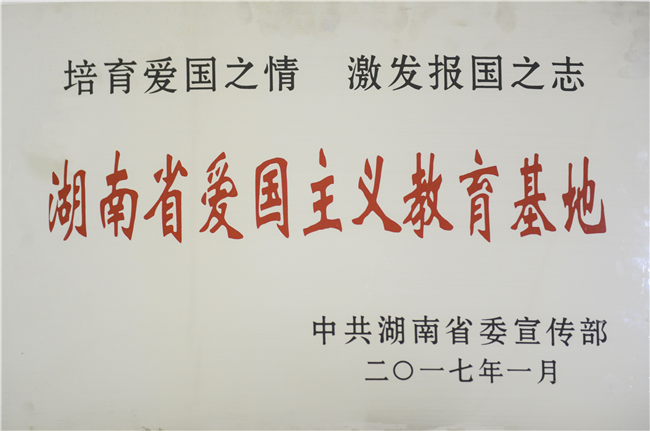 培育爱国之情 激发报国之志
湖南省爱国主义教育基地
中共湖南省委宣传部
二〇一七年一月